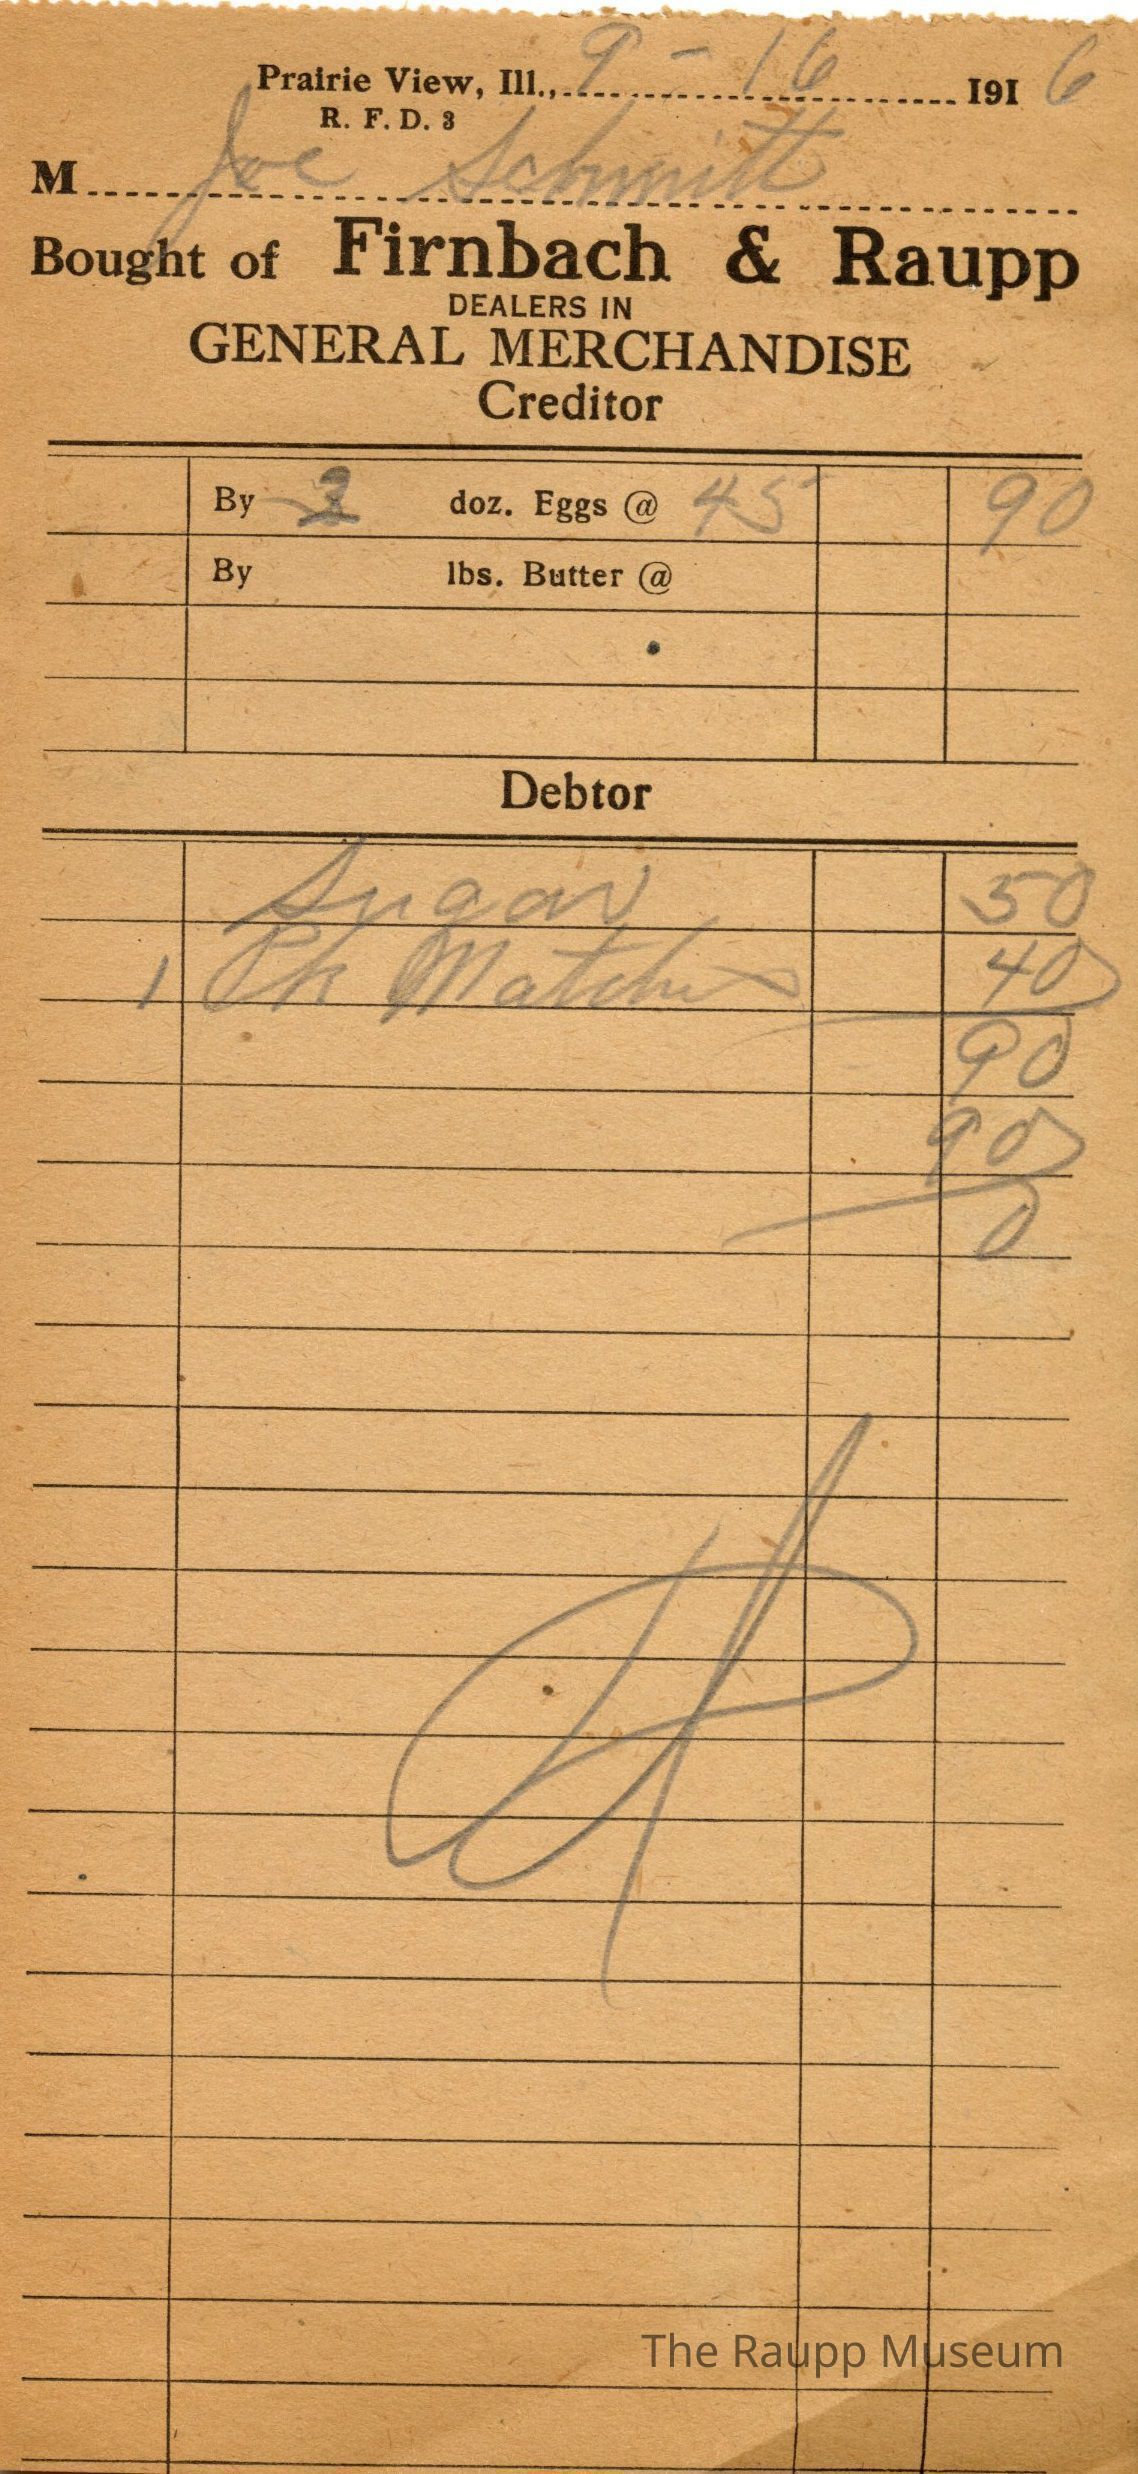 Prairie View, Ill., 9 - 16 1916
R. F. D. 3
M Joe Schmitt
Bought of Firnbach & Raupp
DEALERS IN
GENERAL MERCHANDISE
Creditor
By 2 doz. Eggs @ 45 90
By lbs. Butter @
Debtor
Sugar 50
1 Pk Matches 40
90
90
0
The Raupp Museum